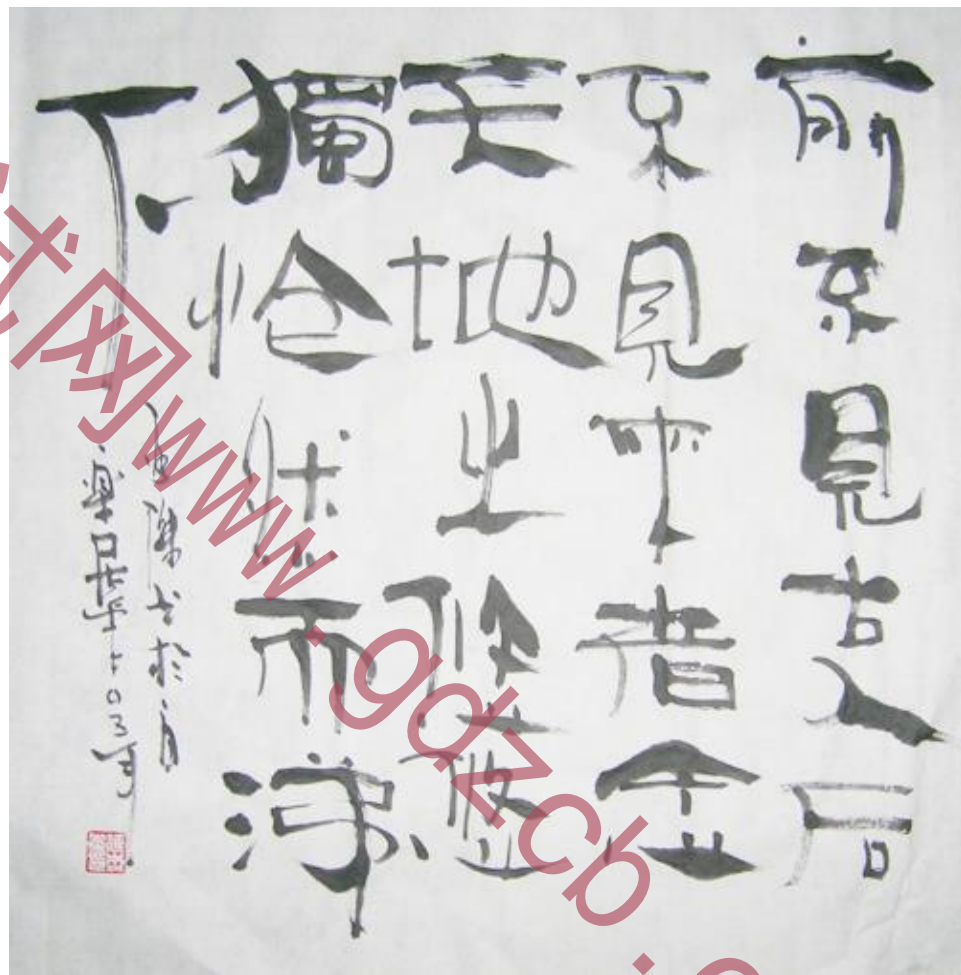 前不見古人后
不見來者念
天地之悠悠
獨怆然而涕
下
试网www.gdzcb.